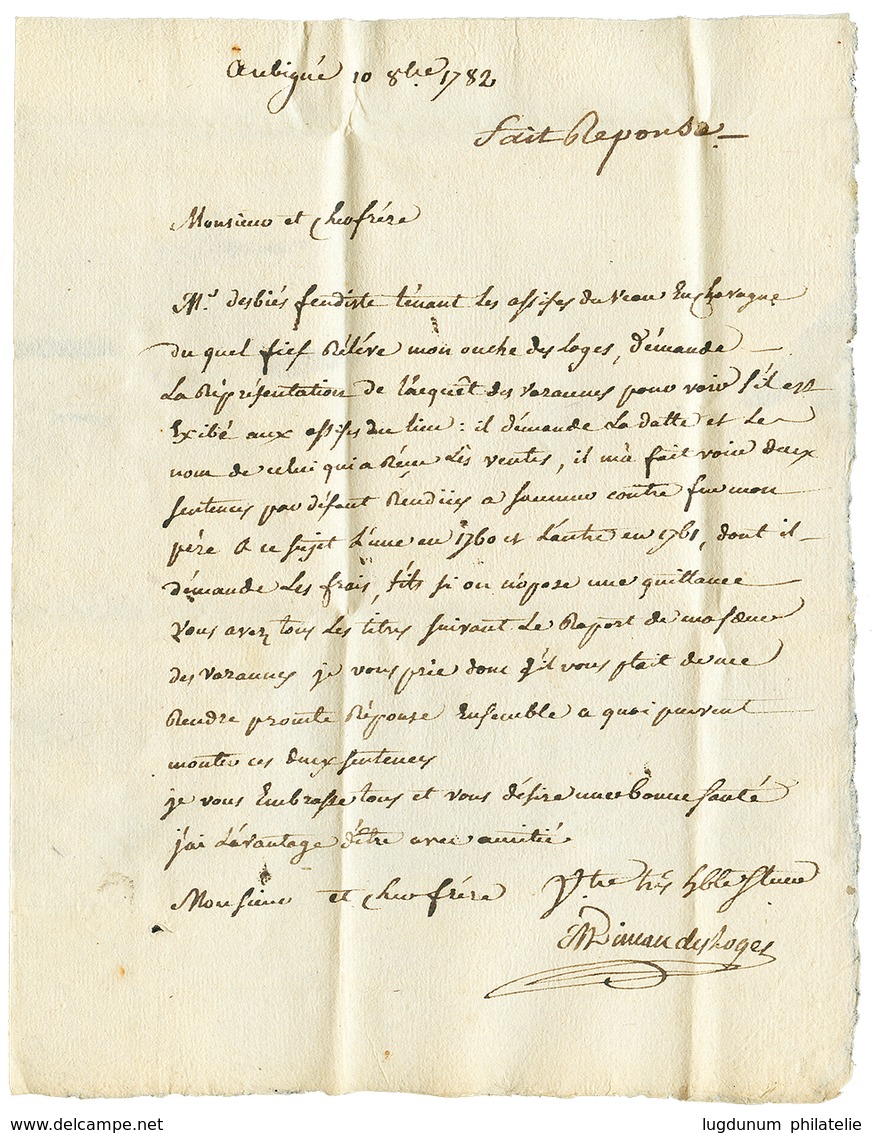 Aubigné 10 8bre 1782
fait Reponse
Monsieur et cher frére
Mr. desbiés feudiste ténant les assises du veau En chavagne
du quel fief Réléve mon ouche des loges, démande
La Réprésentation de l'acquêt des varannes pour voir s'il est
Exibé aux assises du lieu : il démande La datte et Le
nom de celui qui a Récu Lés ventes, il m'a fait voir deux
sentences par défaut Rendües a Saumur contre feu mon
pére a ce sujet L'une en 1760 et L'autre en 1761, dont il
démande Les frais, si on n'opose une quittance
Vous avez tous Les titres suivant Le Raport de ma sœur
des varannes je vous prie donc s'il vous plait de me
Rendre promte Réponse Ensemble a quoi peuvent
monter ces deux sentences
je vous Embrasse tous et vous désire une bonne santé
j'ai L'avantage d'étre avec amitié
Monsieur et cher frére Vtre trés hble
des Loges
www.delcampe.net
lugdunum philatelie